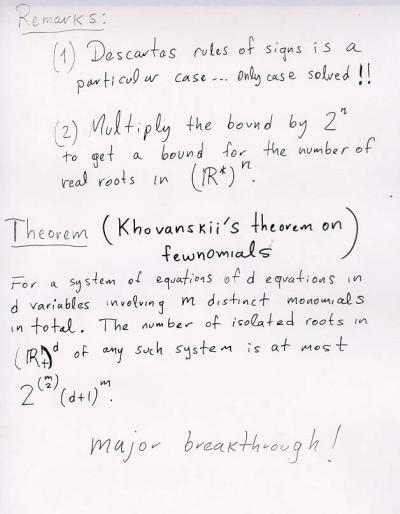 Remarks:
(1) Descartes rules of signs is a
particular case... only case solved!!
(2) Multiply the bound by 2^n
to get a bound for the number of
real roots in (ℝ*)^n.
Theorem (Khovanskii's theorem on
fewnomials)
For a system of equations of d equations in
d variables involving m distinct monomials
in total. The number of isolated roots in
(ℝ₊)^d of any such system is at most
2^(m choose 2) (d+1)^m.
major breakthrough!